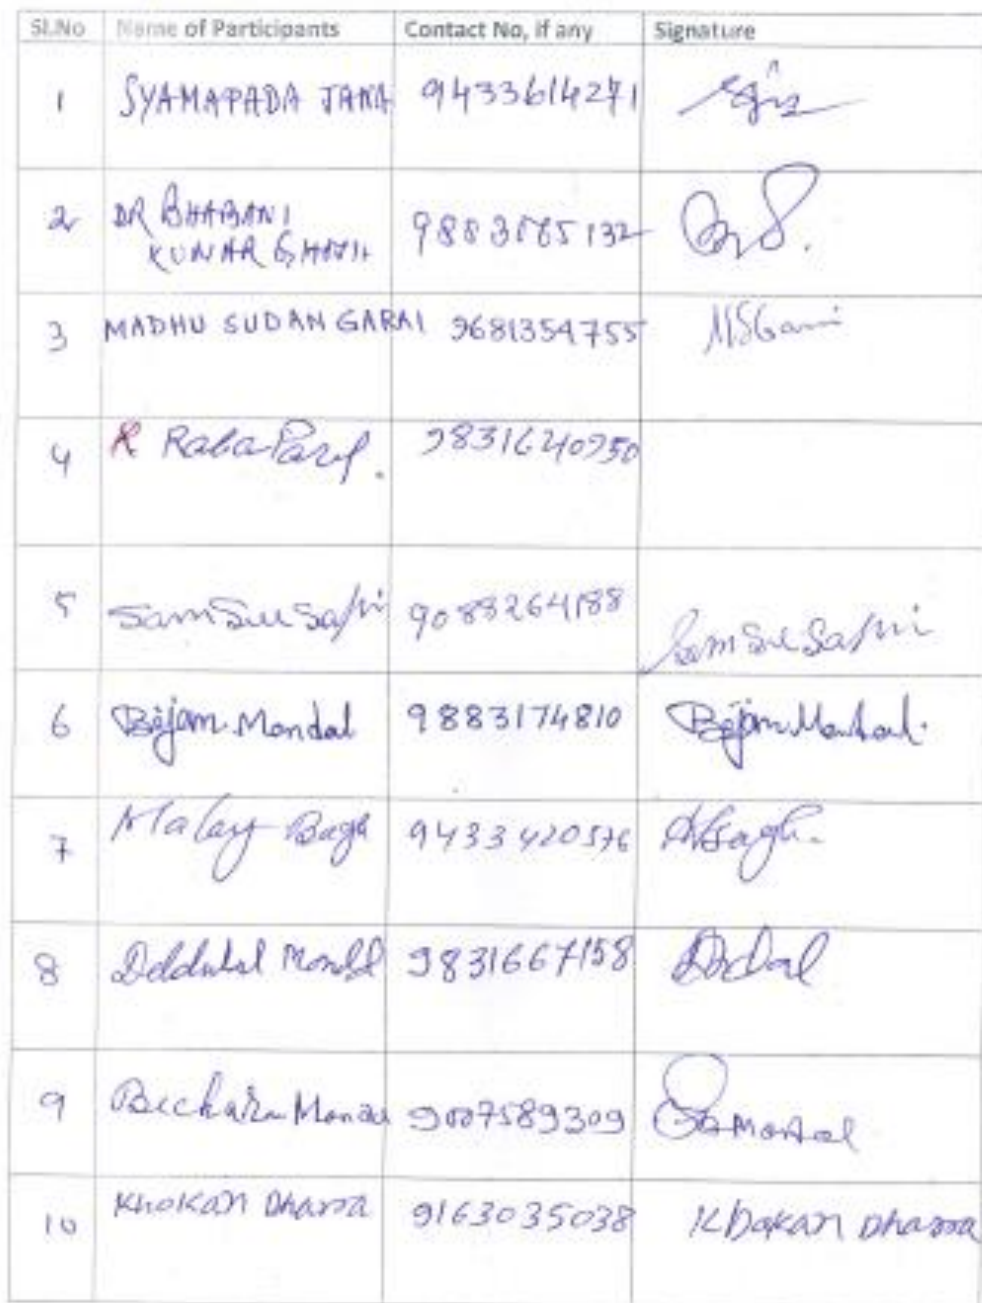 Sl.No Name of Participants Contact No, if any Signature
1 SYAMAPADA JANA 9433614271
2 DR BHABANI
KUMAR GHOSH 9883885132
3 MADHU SUDAN GARAI 9681354755 MSGarai
4 R 9831640750
5 Samsu 9088264188 Samsu
6 Bijan Mondal 9883174810 Bijan Mondal.
7 Malay Bagh 9433420576 MBagh.
8 Mondal 9831667158
9 Becharam Mondal 9007589309 Mondal
10 Khokan Dhara 9163035038 Khokan Dhara